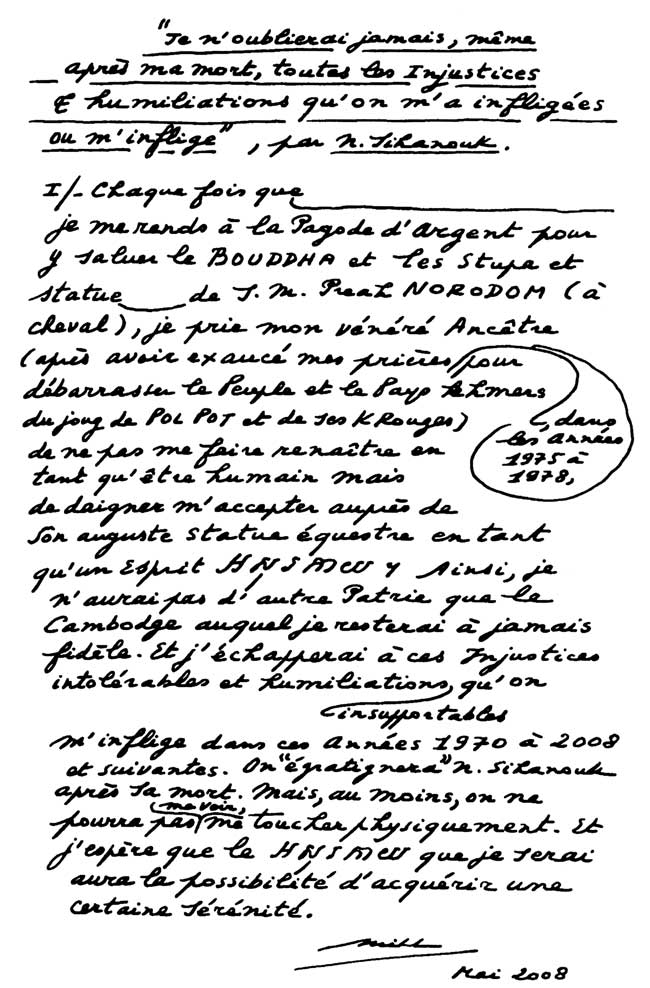 "Je n'oublierai jamais, même
après ma mort, toutes les Injustices
& humiliations qu'on m'a infligées
ou m'inflige", par N. Sihanouk.
I/- Chaque fois que
je me rends à la Pagode d'Argent pour
y saluer le BOUDDHA et les Stupa et
statue de S. M. Preah NORODOM (à
cheval), je prie mon vénéré Ancêtre
(après avoir exaucé mes prières pour
débarrasser le Peuple et le Pays Khmers
du joug de POL POT et de ses K Rouges)
, dans
les années
1975 à
1978,
de ne pas me faire renaître en
tant qu'être humain mais
de daigner m'accepter auprès de
Son auguste statue équestre en tant
qu'un Esprit Ainsi, je
n'aurai pas d'autre Patrie que le
Cambodge auquel je resterai à jamais
fidèle. Et j'échapperai à ces Injustices
intolérables et humiliations, qu'on
insupportables
m'inflige dans ces Années 1970 à 2008
et suivantes. On "égratignera" N. Sihanouk
après sa mort. Mais, au moins, on ne
me voir,
pourra pas me toucher physiquement. Et
j'espère que le que je serai
aura la possibilité d'acquérir une
certaine sérénité.
Mai 2008